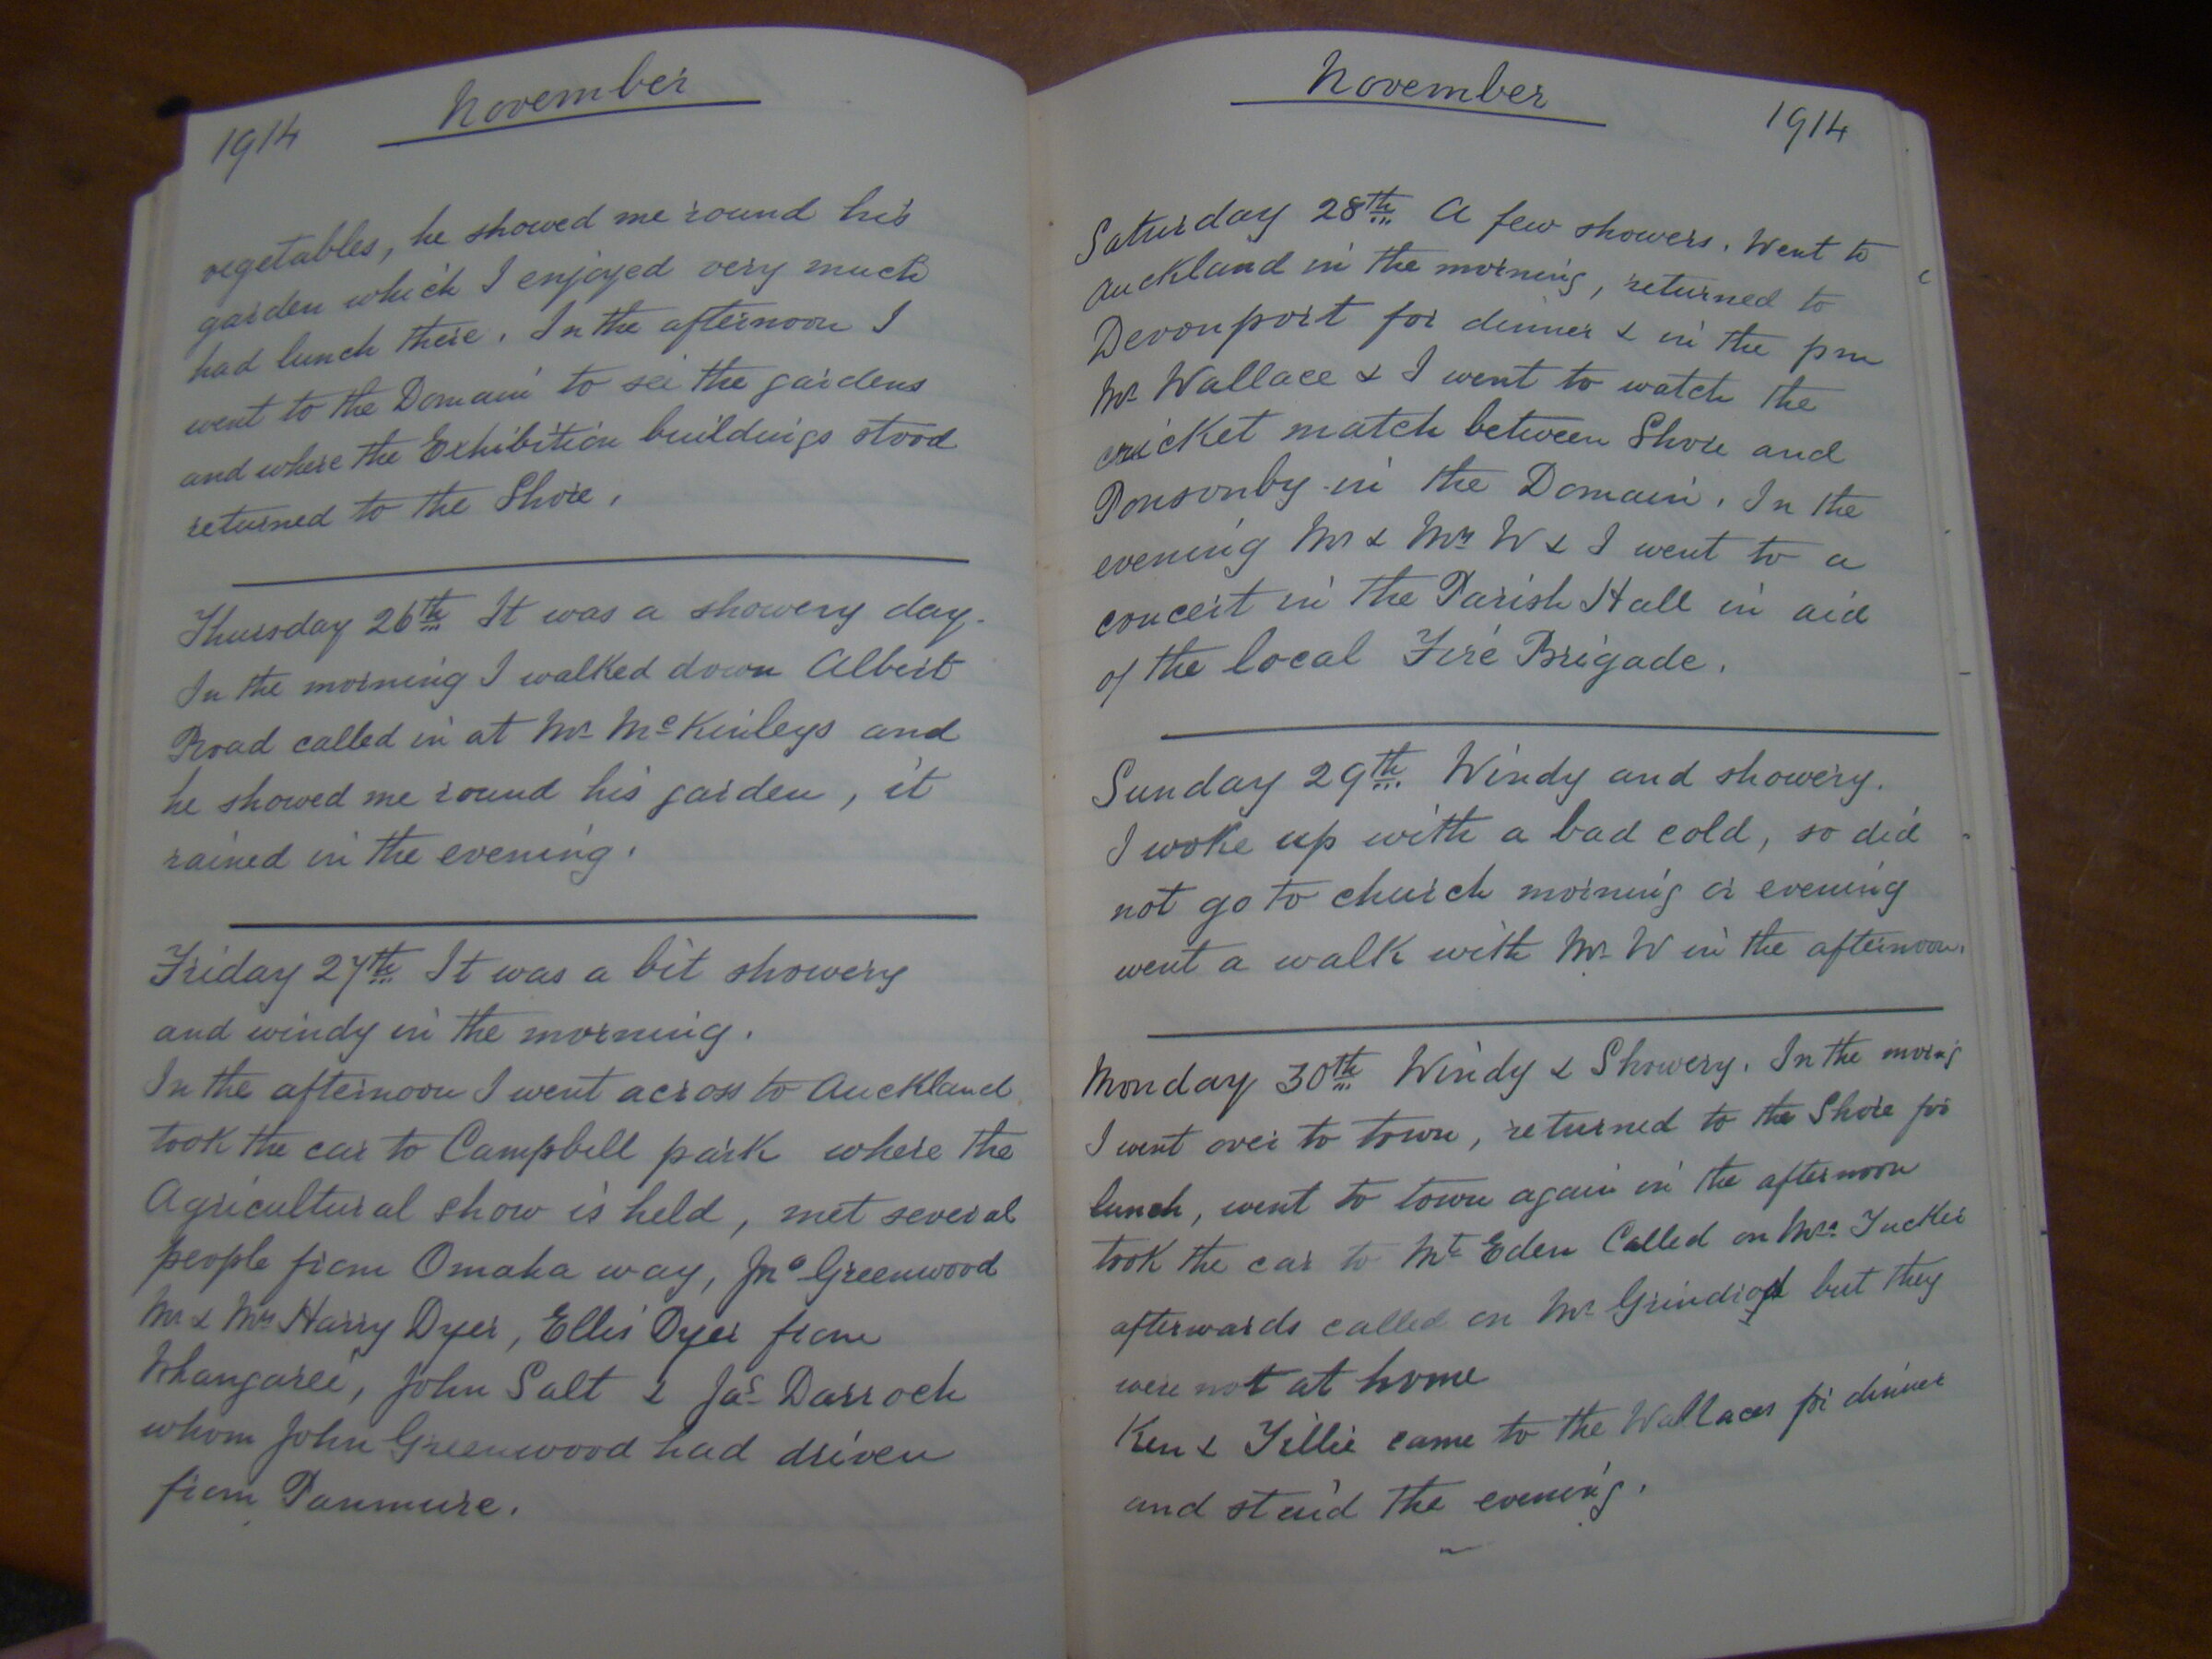 1914
November
vegetables, he showed me round his
garden which I enjoyed very much
had lunch there. In the afternoon I
went to the Domain to see the gardens
and where the Exhibition buildings stood
returned to the Shore.
Thursday 26th It was a showery day.
In the morning I walked down Albert
Road called in at Mr McKinleys and
he showed me round his garden, it
rained in the evening.
Friday 27th It was a bit showery
and windy in the morning.
In the afternoon I went across to Auckland
took the car to Campbell park where the
Agricultural show is held, met several
people from Omaha way, Jno Greenwood
Mr & Mrs Harry Dyer, Ellis Dyer from
Whangarei, John Salt & Jas Darroch
whom John Greenwood had driven
from Panmure.
November
1914
Saturday 28th A few showers. Went to
Auckland in the morning, returned to
Devonport for dinner & in the pm
Mr Wallace & I went to watch the
cricket match between Shore and
Ponsonby in the Domain. In the
evening Mr & Mrs W & I went to a
concert in the Parish Hall in aid
of the local Fire Brigade.
Sunday 29th Windy and showery.
I woke up with a bad cold, so did
not go to church morning or evening
went a walk with Mr W in the afternoon.
Monday 30th Windy & Showery. In the morng
I went over to town, returned to the Shore for
lunch, went to town again in the afternoon
took the car to Mt Eden Called on Mrs Tucker
afterwards called on Mr but they
were not at home
Ken & Tillie came to the Wallaces for dinner
and staid the evening.